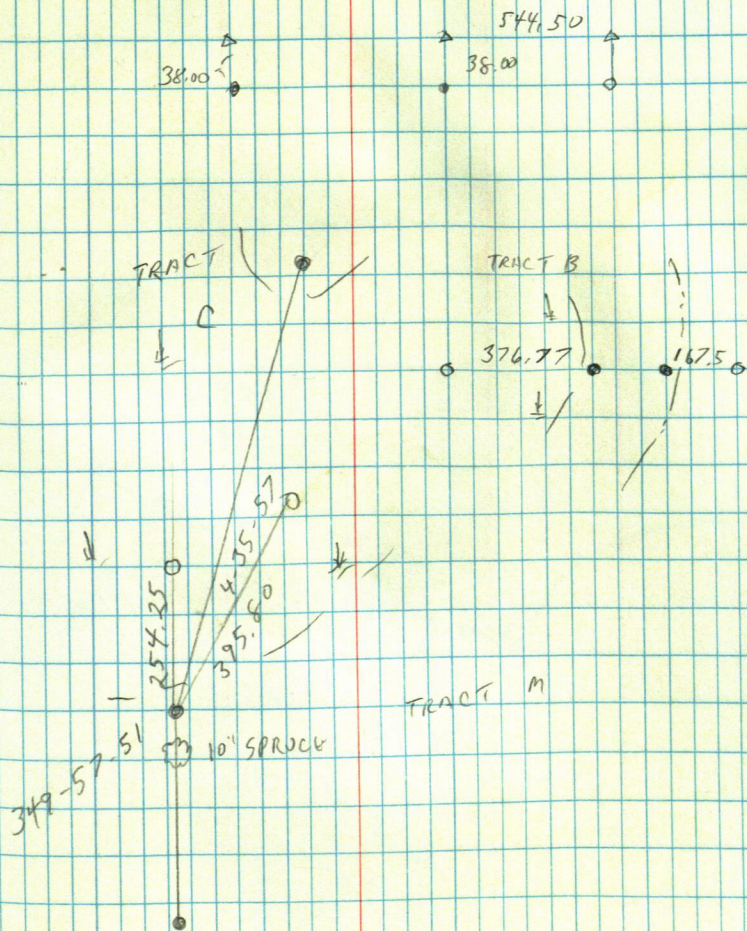 544.50
38.00
38.00
TRACT
C
TRACT B
376.77
167.5
4-35-57
395.80
254.25
TRACT M
349-57-51
10" SPRUCE